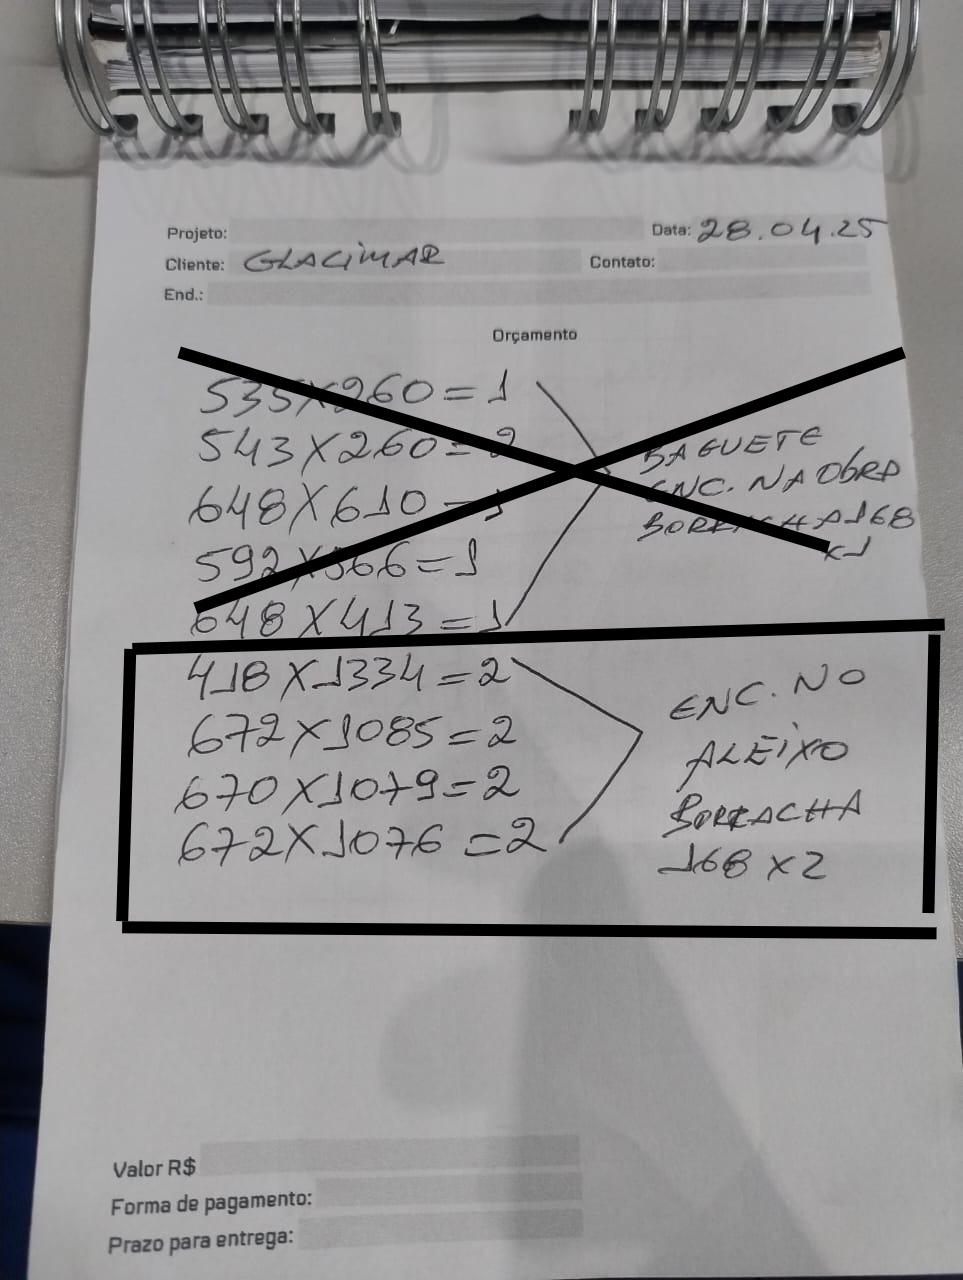 Projeto:
Data: 28.04.25
Cliente: GLACIMAR
Contato:
End.:
Orçamento
535X260=1
543X260=2
648X610=1
592X366=1
648X413=1
BAGUETE
ENC. NA OBRA
BORRACHA 168
x1
418X1334=2
672X1085=2
670X1079=2
672X1076=2
ENC. NO
ALEIXO
BORRACHA
168 X 2
Valor R$
Forma de pagamento:
Prazo para entrega: